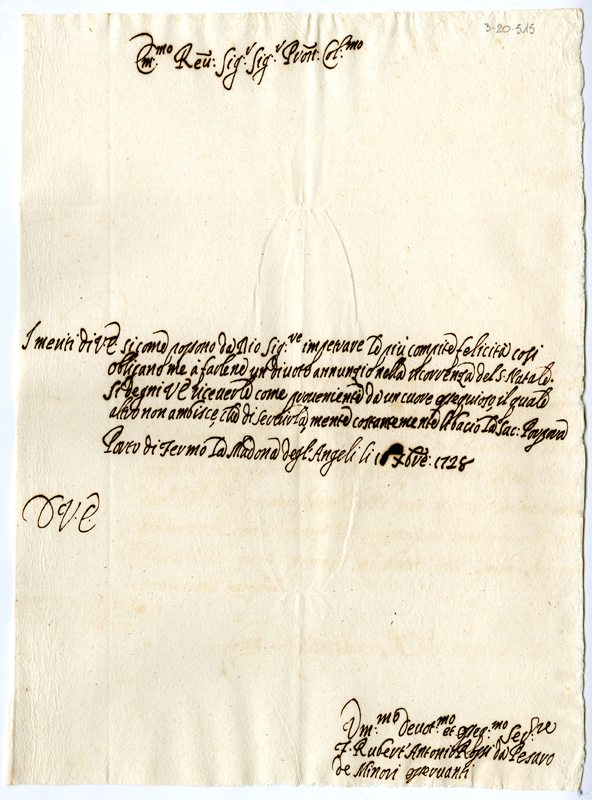 3-20-515
Em.mo Reu: Sig.r Sig.r Pron: Col.mo
I meriti di V E sicome possono da Dio Sig.re impetrare la più compita felicità così
obligano me à farlene un divoto annunzio nella ricorrenza del S. Natale.
Si degni V E riceverlo come proveniente da un cuore ossequioso, il quale
altro non ambisce, che di servirla, mentre costantemente le bacio la Sac: Porpora
Porto di Fermo La Madona degl'Angeli li Xbre: 1728
D V. E
Vm.mo Devot.mo et osseq.mo Ser.re
F. Rubert' Antonio da Pesaro
de Minori osservanti